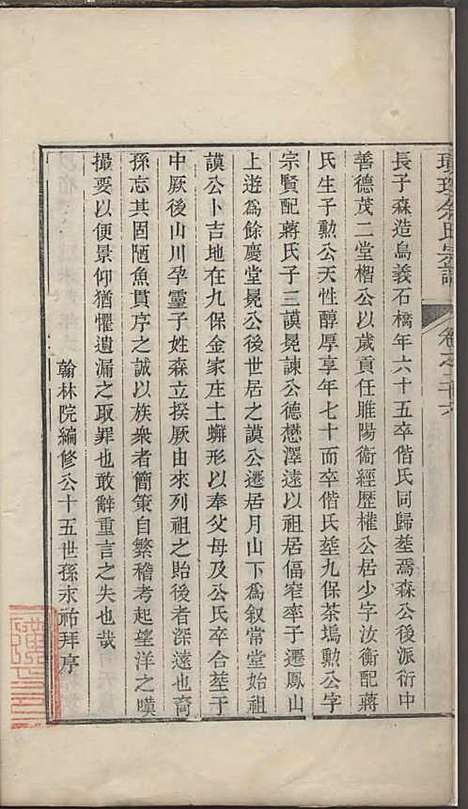 長子森造鳥義石橋年六十五卒偕氏同歸塟焉森公後派衍中
善德茂二堂楷公以歲貢任睢陽衛經歷權公居少字汝衡配蔣
氏生子勲公天性醇厚享年七十而卒偕氏塟九保茶塢勲公字
宗賢配蔣氏子三謨晃諫公德懋澤遠以祖居偪窄率子遷鳳山
上遊爲餘慶堂晃公後世居之謨公遷居月山下爲叙常堂始祖
謨公卜吉地在九保金家庄土螃形以奉父母及公氏卒合塟于
中厥後山川孕靈子姓森立揆厥由來列祖之貽後者深遠也裔
孫志其固陋魚貫序之誠以族衆者簡策自繁稽考起望洋之嘆
撮要以便景仰猶懼遺漏之取罪也敢辭重言之失也哉
翰林院編修公十五世孫永祐拜序
氏宗譜
卷之